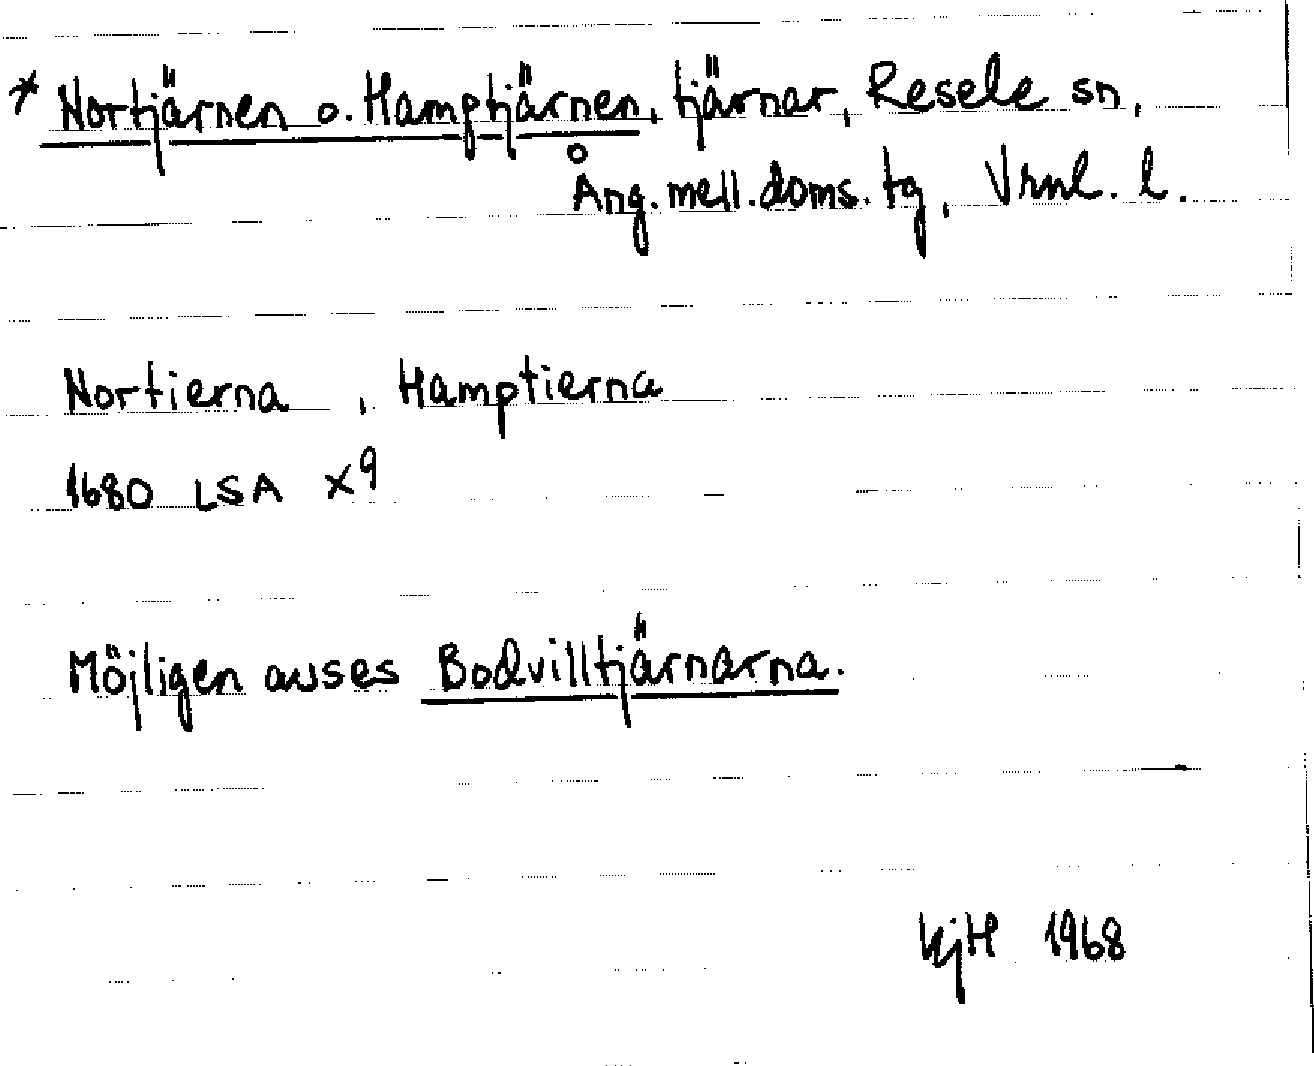 * Nortjärnen o. Hamptjärnen, tjärnar, Resele sn,
Ång. mell. doms. tg, Vrnl. l.
Nortierna, Hamptierna
1680 LSA X9
Möjligen avses Bodvilltjärnarna.
KjH 1968